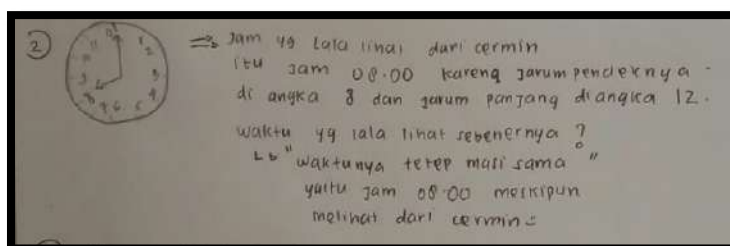 2
12 1 2 3 4 5 6 7 8 9 10 11
⇒ Jam yg Lala lihat dari cermin
itu Jam 08.00 karena Jarum pendeknya -
di angka 8 dan jarum panjang diangka 12.
waktu yg lala lihat sebenernya ?
↳ "waktunya tetep masi sama"
yaitu Jam 08.00 meskipun
melihat dari cermin =